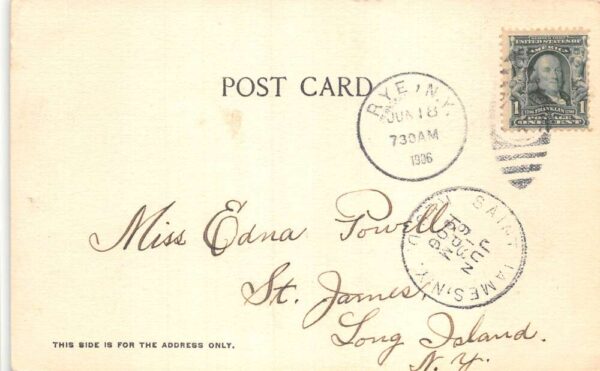 POST CARD
RYE, N.Y.
JUN 18
730AM
1906
UNITED STATES OF
AMERICA
1 FRANKLIN 1
POSTAGE
ONE CENT
SAINT JAMES, N.Y.
JUN
1906
Miss Edna Powell
St. James
Long Island.
N.Y.
THIS SIDE IS FOR THE ADDRESS ONLY.